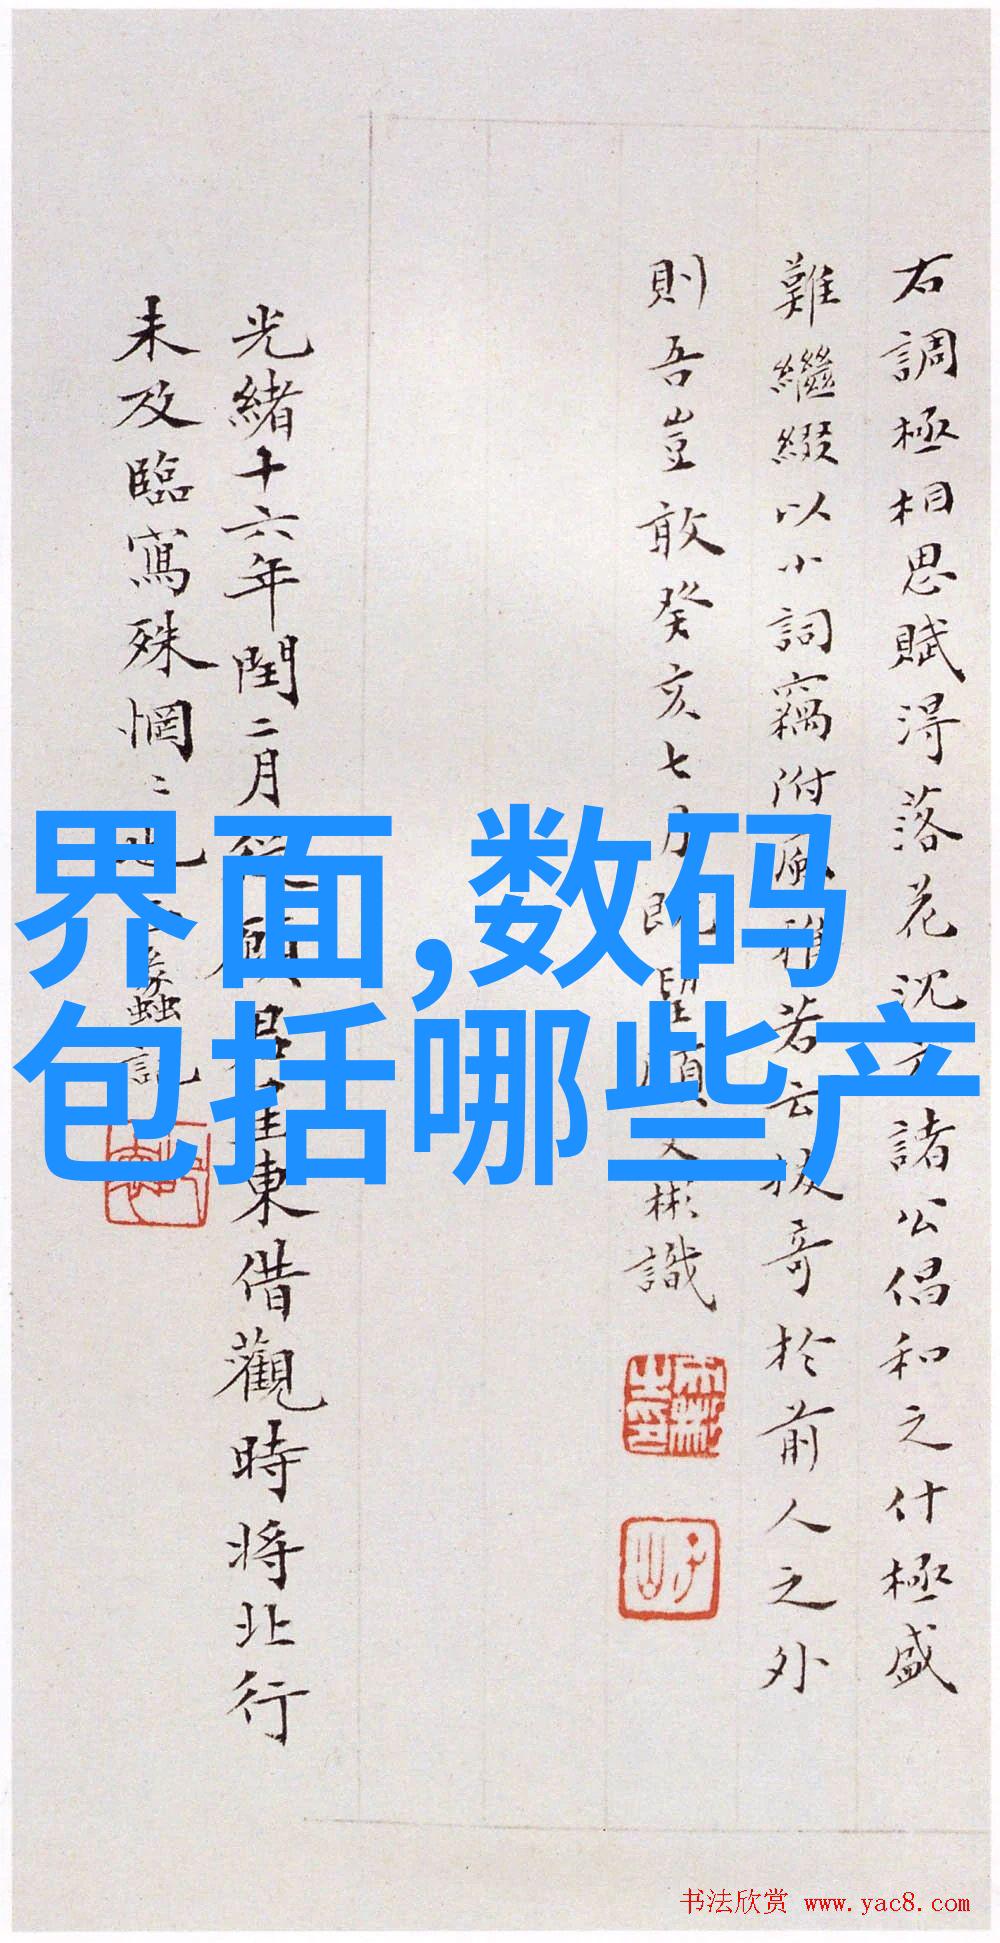 右調極相思賦得落花沈文諸公倡和之什極盛
難繼綴以小詞竊附風雅若云拔奇於前人之外
則吾豈敢癸亥七月既望顧文彬識
光緒十六年閏二月從顧君 東借觀時將北行
未及臨寫殊惘〻也 蟸記
界面,数码
包括哪些产
书法欣赏 www.yac8.com